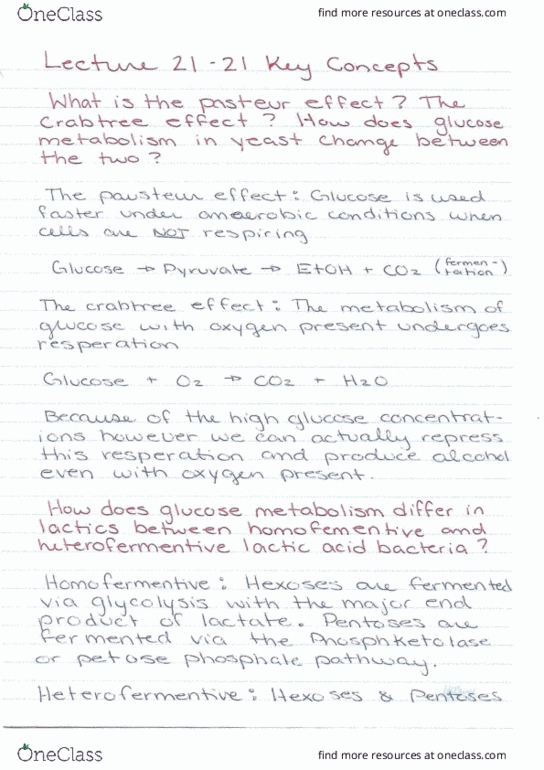 OneClass
find more resources at oneclass.com
Lecture 21 - 21 Key Concepts
What is the pasteur effect? The
Crabtree effect? How does glucose
metabolism in yeast change between
the two?
The pausteur effect: Glucose is used
faster under anaerobic conditions when
cells are NOT respiring
Glucose → Pyruvate → EtOH + CO2 (fermen-
tation)
The crabtree effect: The metabolism of
glucose with oxygen present undergoes
resperation
Glucose + O2 → CO2 + H2O
Because of the high glucose concentrat-
ions however we can actually repress
this resperation and produce alcohol
even with oxygen present.
How does glucose metabolism differ in
lactics between homofementive and
heterofermentive lactic acid bacteria?
Homofermentive: Hexoses are fermented
via glycolysis with the major end
product of lactate. Pentoses are
fermented via the Phosphketolase
or petose phosphate pathway.
Heterofermentive: Hexoses & Pentoses
OneClass
find more resources at oneclass.com